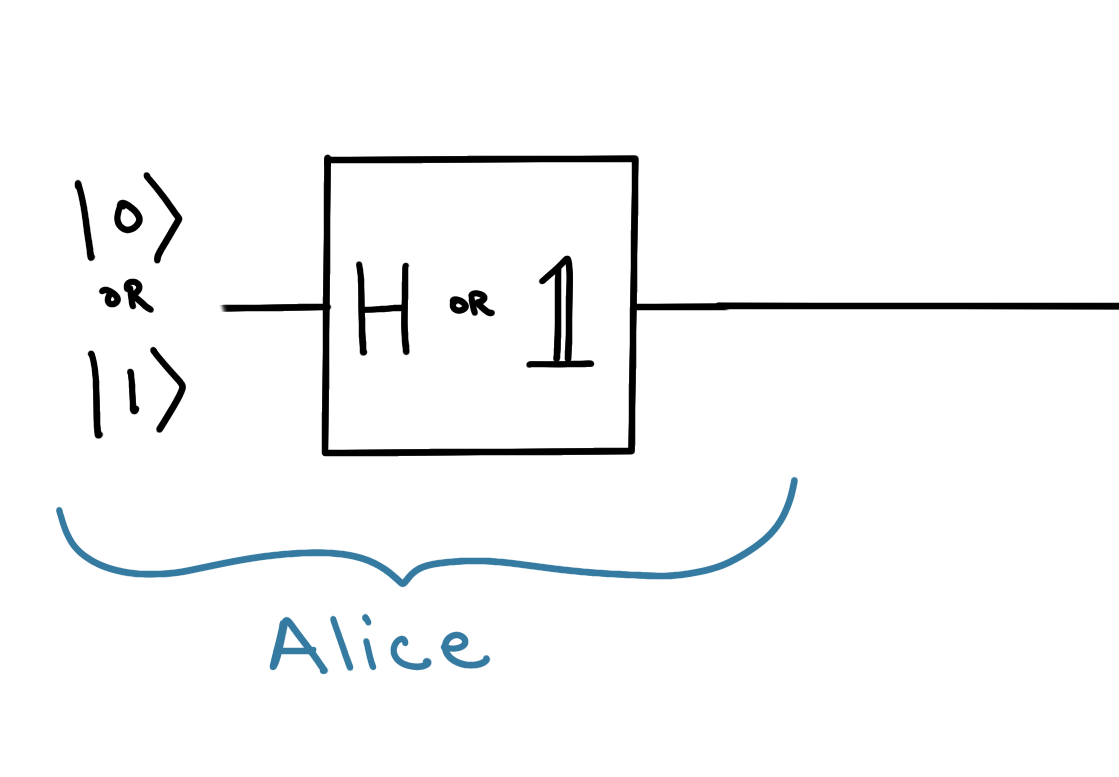 |0⟩
OR
|1⟩
H OR 𝟙
Alice